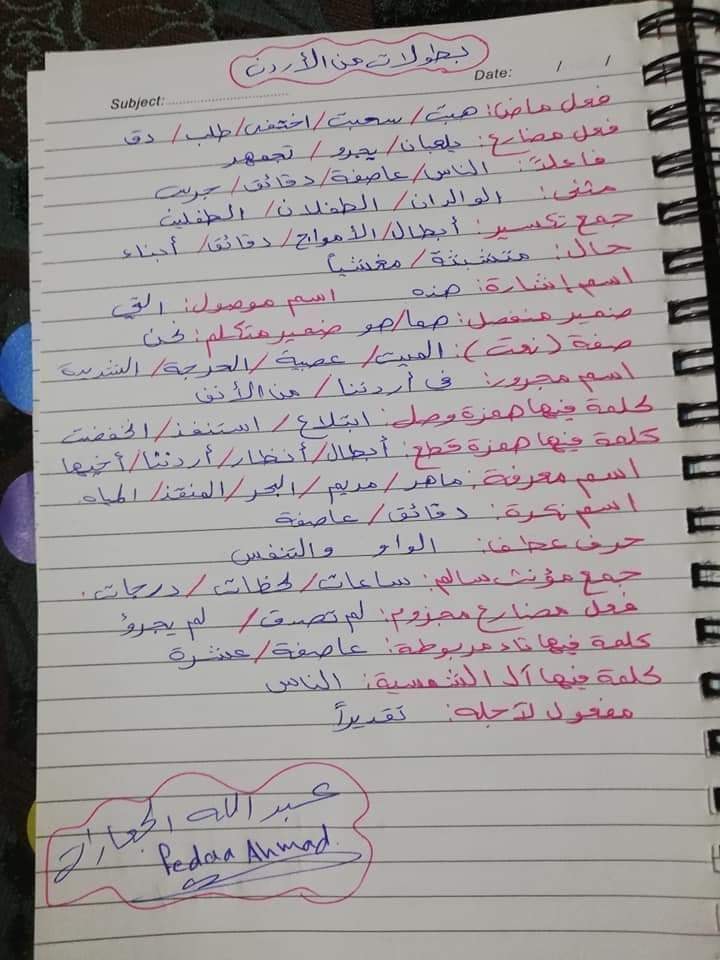 بطولات من الأردن
Subject:
Date: / /
فعل ماض: هبت / سحبت / اختفى / طلب / دق
فعل مضارع: يلعبان / يجرو / تجمهر
فاعل: الناس / عاصفة / دقائق / جرت
مثنى: الوالدان / الطفلان / الطفلين
جمع تكسير: أبطال / الأمواج / دقائق / أبناء
حال: متشبثة / مغشياً
اسم إشارة: هذه اسم موصول: التي
ضمير منفصل: هما / هو ضمير متكلم: نحن
صفة (نعت): الميت / عصيبة / الحرجة / الشديدة
اسم مجرور: في أردننا / من الأنف
كلمة فيها همزة وصل: ابتلاع / استنفذ / انخفضت
كلمة فيها همزة قطع: أبطال / أنظار / أردننا / أخيها
اسم معرفة: ماهر / مريم / البحر / المنقذ / المياه
اسم نكرة: دقائق / عاصفة
حرف عطف: الواو والتنفس
جمع مؤنث سالم: ساعات / لحظات / درجات.
فعل مضارع مجزوم: لم / لم يجرؤ
كلمة فيها تاء مربوطة: عاصفة / عشرة
كلمة فيها أل الشمسية: الناس
مفعول لأجله: تقديراً
عبد الله
Pedaa Ahmad